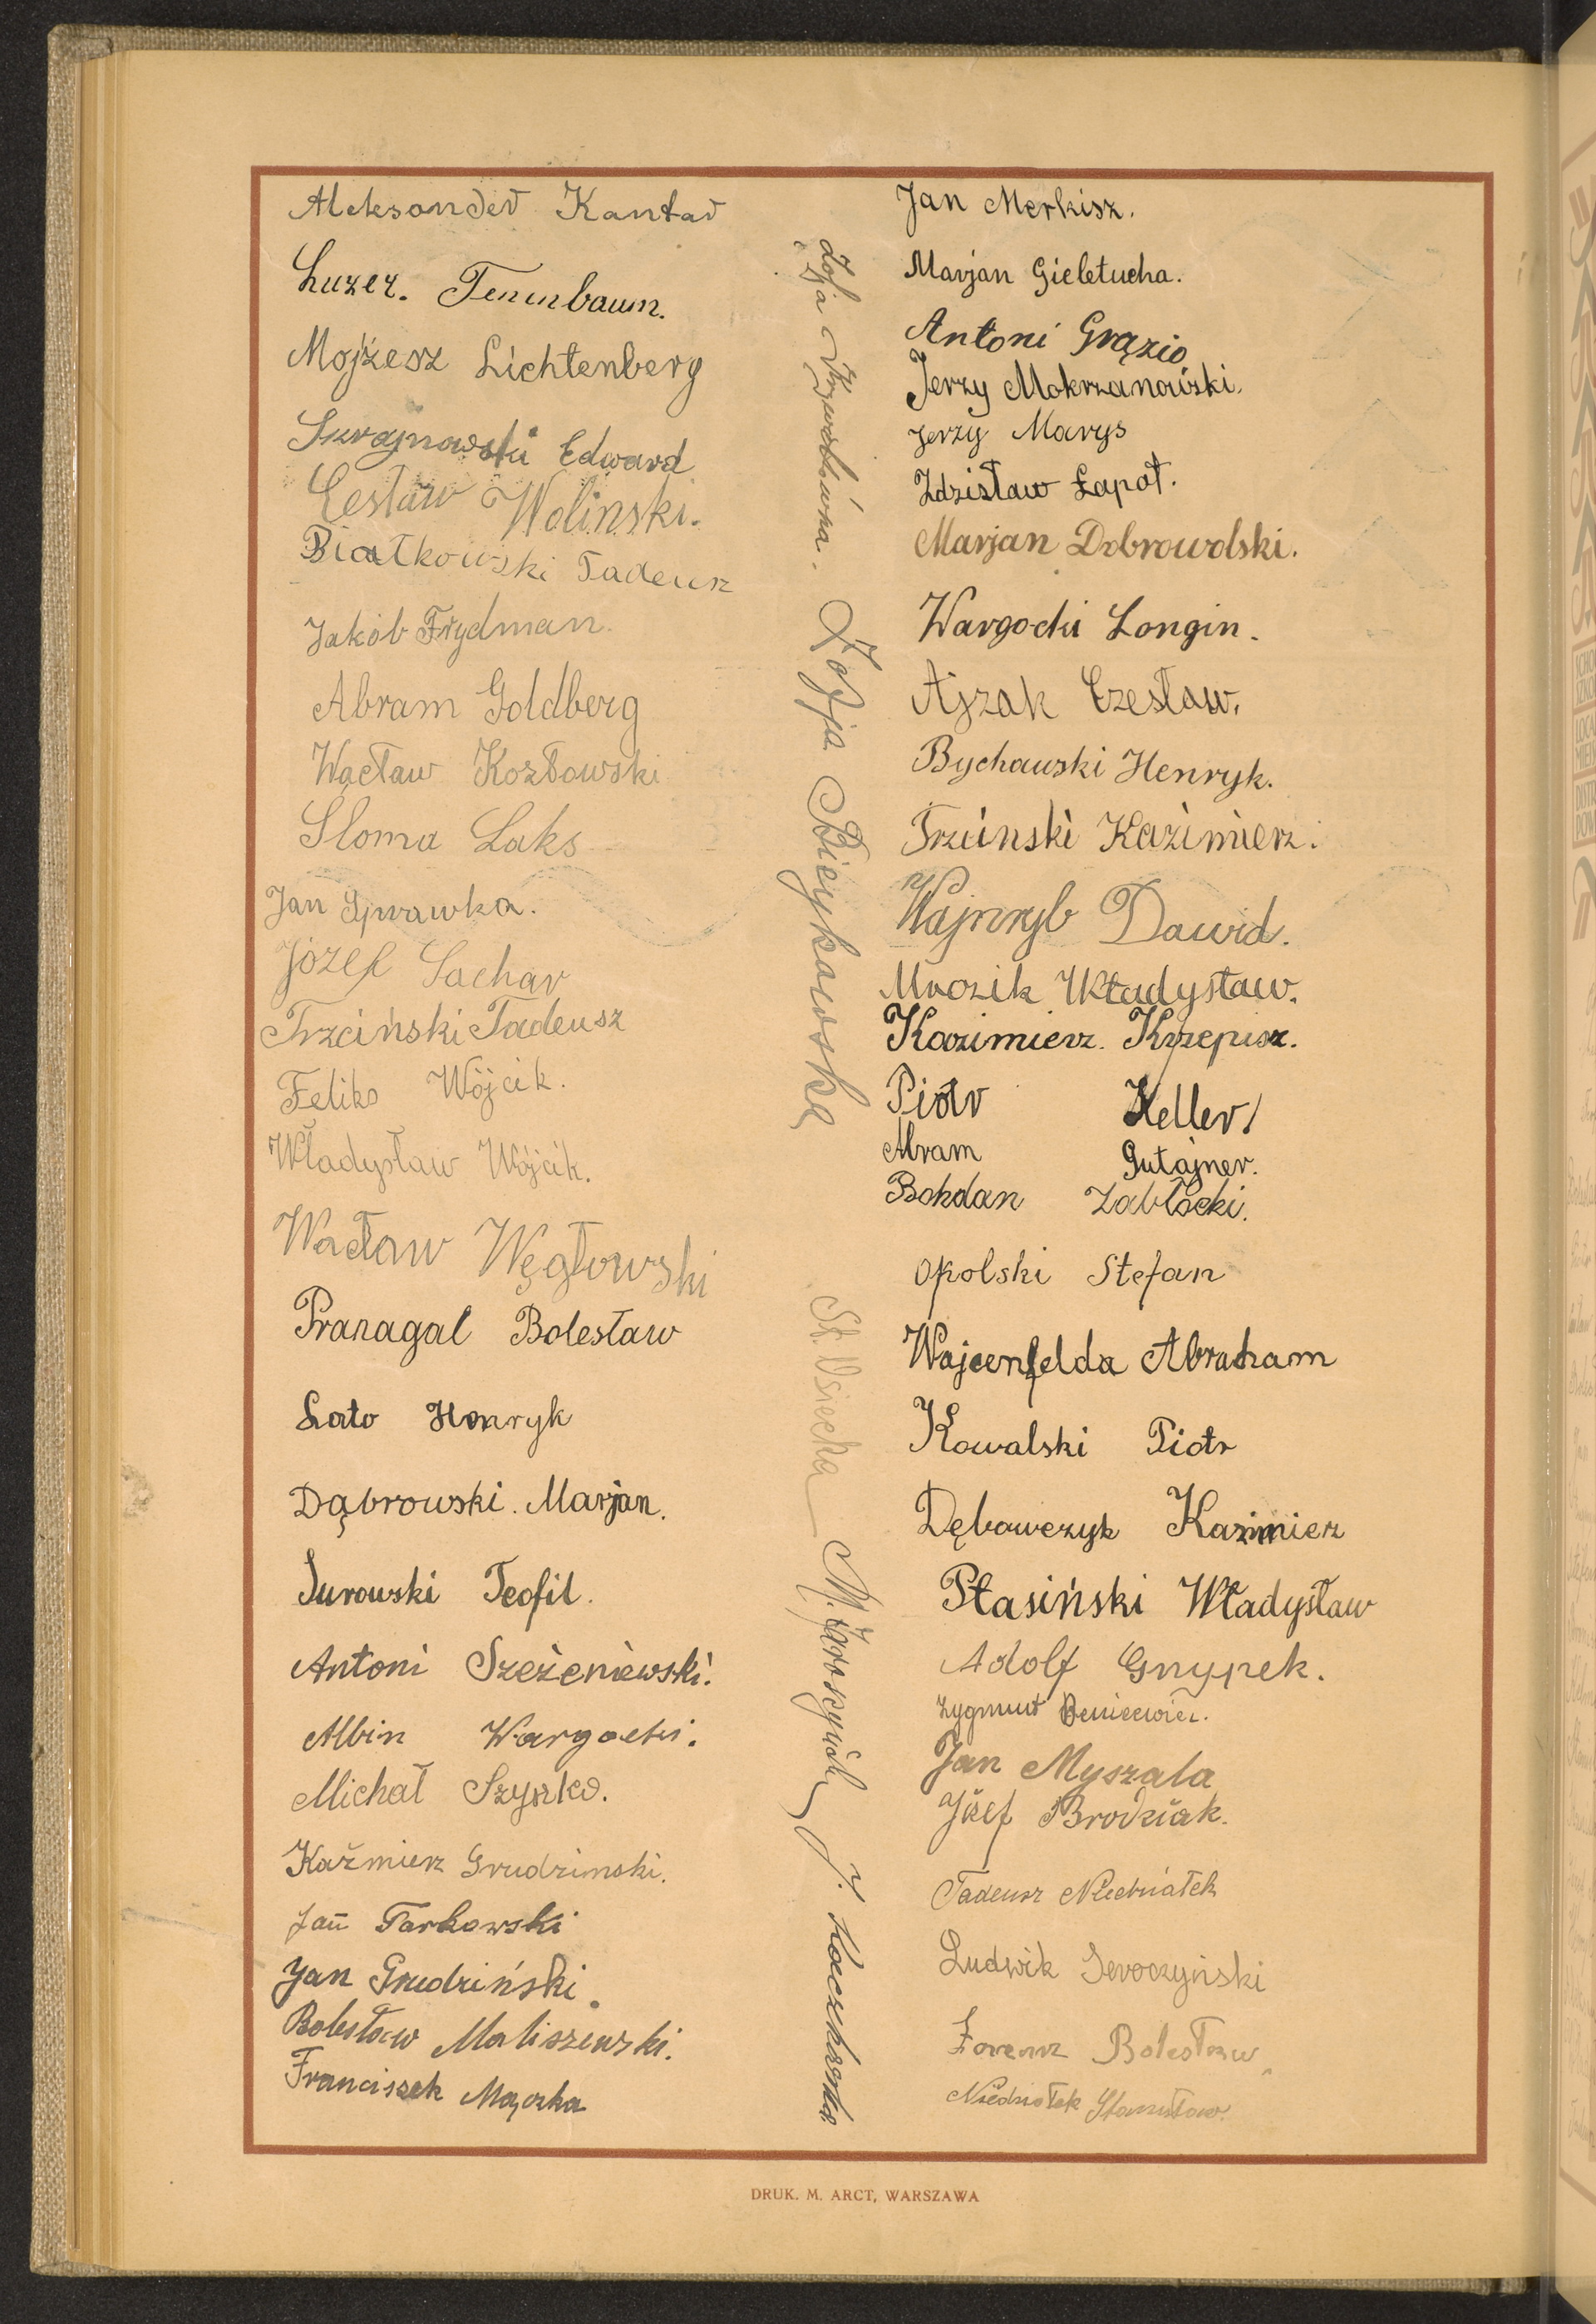 Aleksander Kantar
Luzer. Tenenbaum.
Mojżesz Lichtenberg
Edward
Cesław Wolinski.
Białkowski Tadeusz
Jakób Frydman.
Abram Goldberg
Wacław Kozłowski
Sloma Laks
Jan Sprawka.
Józef Sachar
Trzciński Tadeusz
Feliks Wójcik.
Władysław Wójcik.
Wacław Węgłowski
Pranagal Bolesław
Lato Henryk
Dąbrowski. Marjan.
Jurowski Teofil.
Antoni
Albin Wargocki.
Michał Szyszko.
Kaźmierz Grudzinski.
Jan Tarkowski
Jan Grudziński.
Bolesław Maliszewski.
Franciszek Mączka
Zofja
Zofja
St. Osiecka
M.
J.
Jan Merkisz.
Marjan Gieletucha.
Antoni Grązio
Jerzy Mokrzanowski.
Jerzy Marys
Zdzisław Łapot.
Marjan Dobrowolski.
Wargocki Longin.
Ajzak Czesław.
Bychawski Henryk.
Trzcinski Kazimierz.
Wajnryb Dawid.
Mrozik Władysław.
Kazimierz. Krzepisz.
Piotr Keller
Abram Gutajner.
Bohdan Zabłocki.
Opolski Stefan
Wajcenfelda Abraham
Kowalski Piotr
Dębowczyk Kazimierz
Ptasiński Władysław
Adolf Gnypek.
Zygmunt
Jan Myszala
Józef Brodziak.
Tadeusz
Ludwik
Bolesław
Stanisław
DRUK. M. ARCT, WARSZAWA